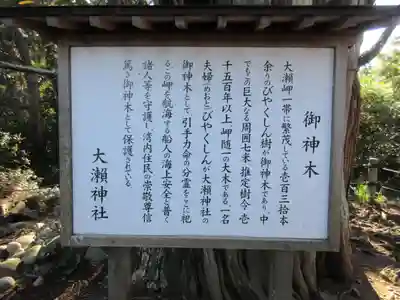 御神木
大瀬岬一帯に繁茂している壱百三拾本
余りのびやくしん樹が御神木であり、中
でもこの巨大なる周囲七米 推定樹令壱
千五百年以上 岬随一の大木である。一名
夫婦(めおと)びやくしんが大瀬神社の
御神木として 引手力命の分霊をことに祀
る。この岬を航海する船人の海上安全と普く
諸人等を守護し 湾内住民の崇敬尊信
篤き御神木として保護されている
大瀬神社